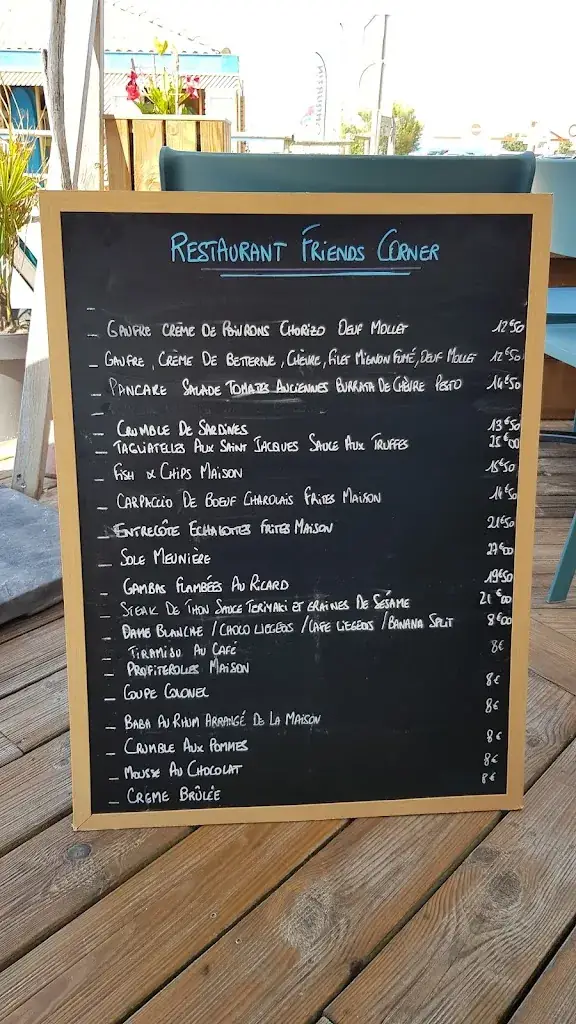 RESTAURANT FRIENDS CORNER
_
_ GAUFRE CRÈME DE POIVRONS CHORIZO OEUF MOLLET 12€50
_ GAUFRE, CRÈME DE BETTERAVE, CHÈVRE, FILET MIGNON FUMÉ, OEUF MOLLET 12€50
_ PANCAKE SALADE TOMATES ANCIENNES BURRATA DE CHÈVRE PESTO 14€50
_
_ CRUMBLE DE SARDINES 13€50
_ TAGLIATELLES AUX SAINT JACQUES SAUCE AUX TRUFFES €00
_ FISH & CHIPS MAISON 15€50
_ CARPACCIO DE BOEUF CHAROLAIS FRITES MAISON 14€50
_ ENTRECÔTE ECHALOTTES FRITES MAISON 21€50
_ SOLE MEUNIÈRE 27€00
_ GAMBAS FLAMBÉES AU RICARD 19€50
_ STEAK DE THON SAUCE TERIYAKI ET GRAINES DE SÉSAME 21€00
_ DAME BLANCHE / CHOCO LIEGEOIS / CAFE LIEGEOIS / BANANA SPLIT 8€00
_ TIRAMISU AU CAFÉ 8€
_ PROFITEROLLES MAISON
_ COUPE COLONEL 8€
_ BABA AU RHUM ARRANGÉ DE LA MAISON 8€
_ CRUMBLE AUX POMMES 8€
_ MOUSSE AU CHOCOLAT 8€
_ CREME BRÛLÉE 8€